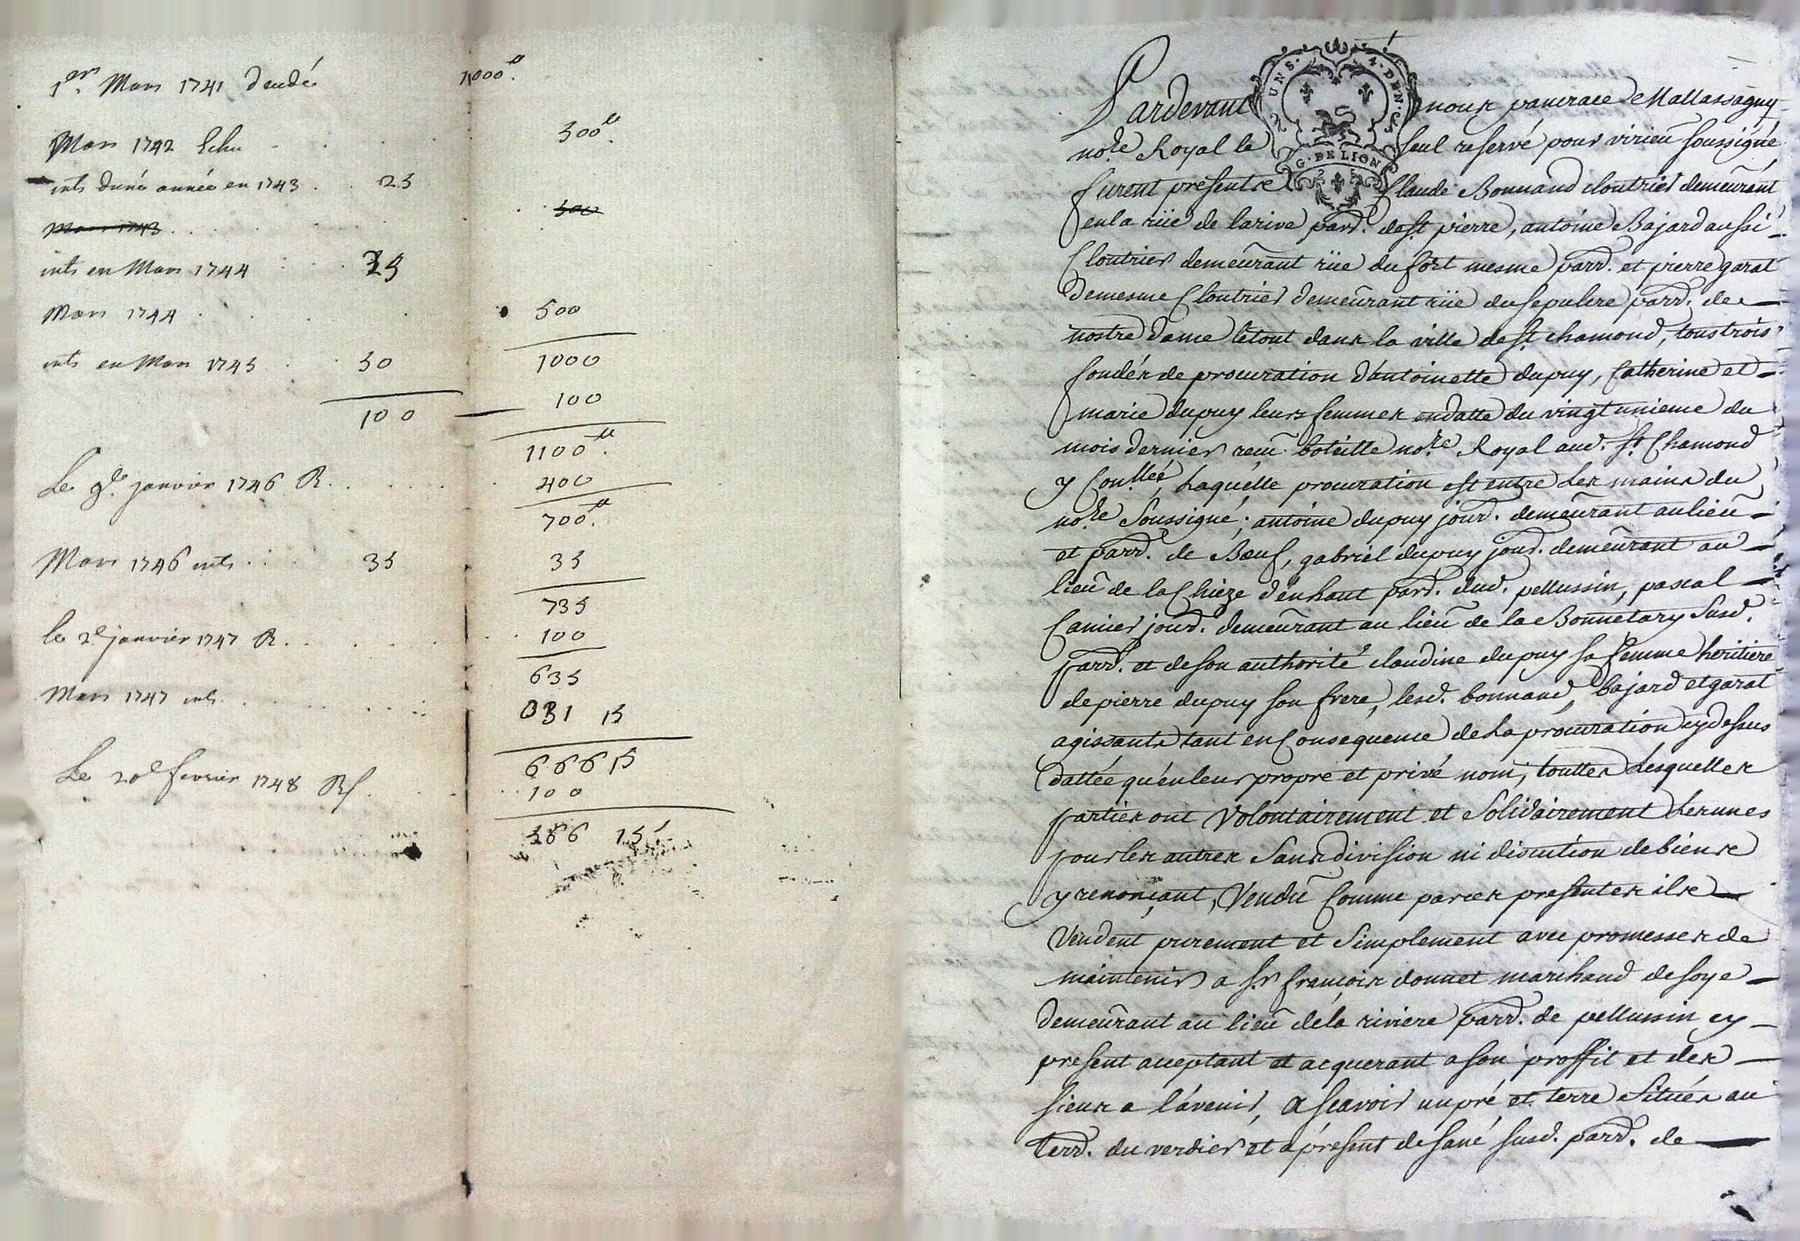 1er. Mars 1741 deudé 1000ᵗᵗ.
Mars 1742 Echu 500ᵗᵗ
ints dune année en 1743 . . 25
Mars 1743 . . . 500
ints en Mars 1744 25
Mars 1744 . 500
ints en Mars 1745 50 1000
100 100
1100ᵗᵗ.
Le 9e. janvier 1746 R. 400
700ᵗᵗ.
Mars 1746 ints 35 35
735
le 2e janvier 1747 R. 100
635
Mars 1747 ints 031 15
666 15
Le 20e fevrier 1748 R 100
566 15
UN S. 4. DEN.
G. DE LION
Pardevant nous pancrace de Mallassagny
nore. Royal le seul reservé pour virieu soussigné
furent presents Claude Bonnand cloutrier demeurant
en la rüe de larive parr. de st. pierre, antoine Bajard aussi
Cloutrier demeurant rüe du fort mesme parr. et pierre garat
de mesme Cloutrier demeurant rüe du sepulcre parr. de
nostre dame le tout dans la ville de st. chamond, tous trois
fondés de procuration d'antoinette dupuy, Catherine et
marie dupuy leurs femmes en datte du vingt unieme du
mois dernier receu boteille nore. Royal aud. st. Chamond
y Conllée, Laquelle procuration est entre les mains du
nore. Soussigné; antoine dupuy jour. demeurant au lieu
et parr. de Bœuf, gabriel dupuy jour. demeurant au
lieu de la Chieze d'enhaut parr. dud. pellussin, pascal
Camier jour. demeurant au lieu de la Bonnetary susd.
parr. et de son authorité claudine dupuy sa femme heritiere
de pierre dupuy son frere, lesd. bonnand, bajard et garat
agissants tant en Consequence de La procuration cy dessus
dattée qu'en leur propre et privé nom, touttes Lesquelles
parties ont Volontairement et Solidairement Les unes
pour les autres Sans division ni discution de biens
y renonçant, Vendu Comme par ces presentes ils
Vendent purement et Simplement avec promesses de
maintenir a sr françois donnet marchand de soye
demeurant au lieu de la riviere parr. de pellussin cy
present acceptant et acquerant a son proffit et des
siens a l'avenir, a scavoir un pré et terre Situés au
terr. du verdier et a present de sané susd. parr. de